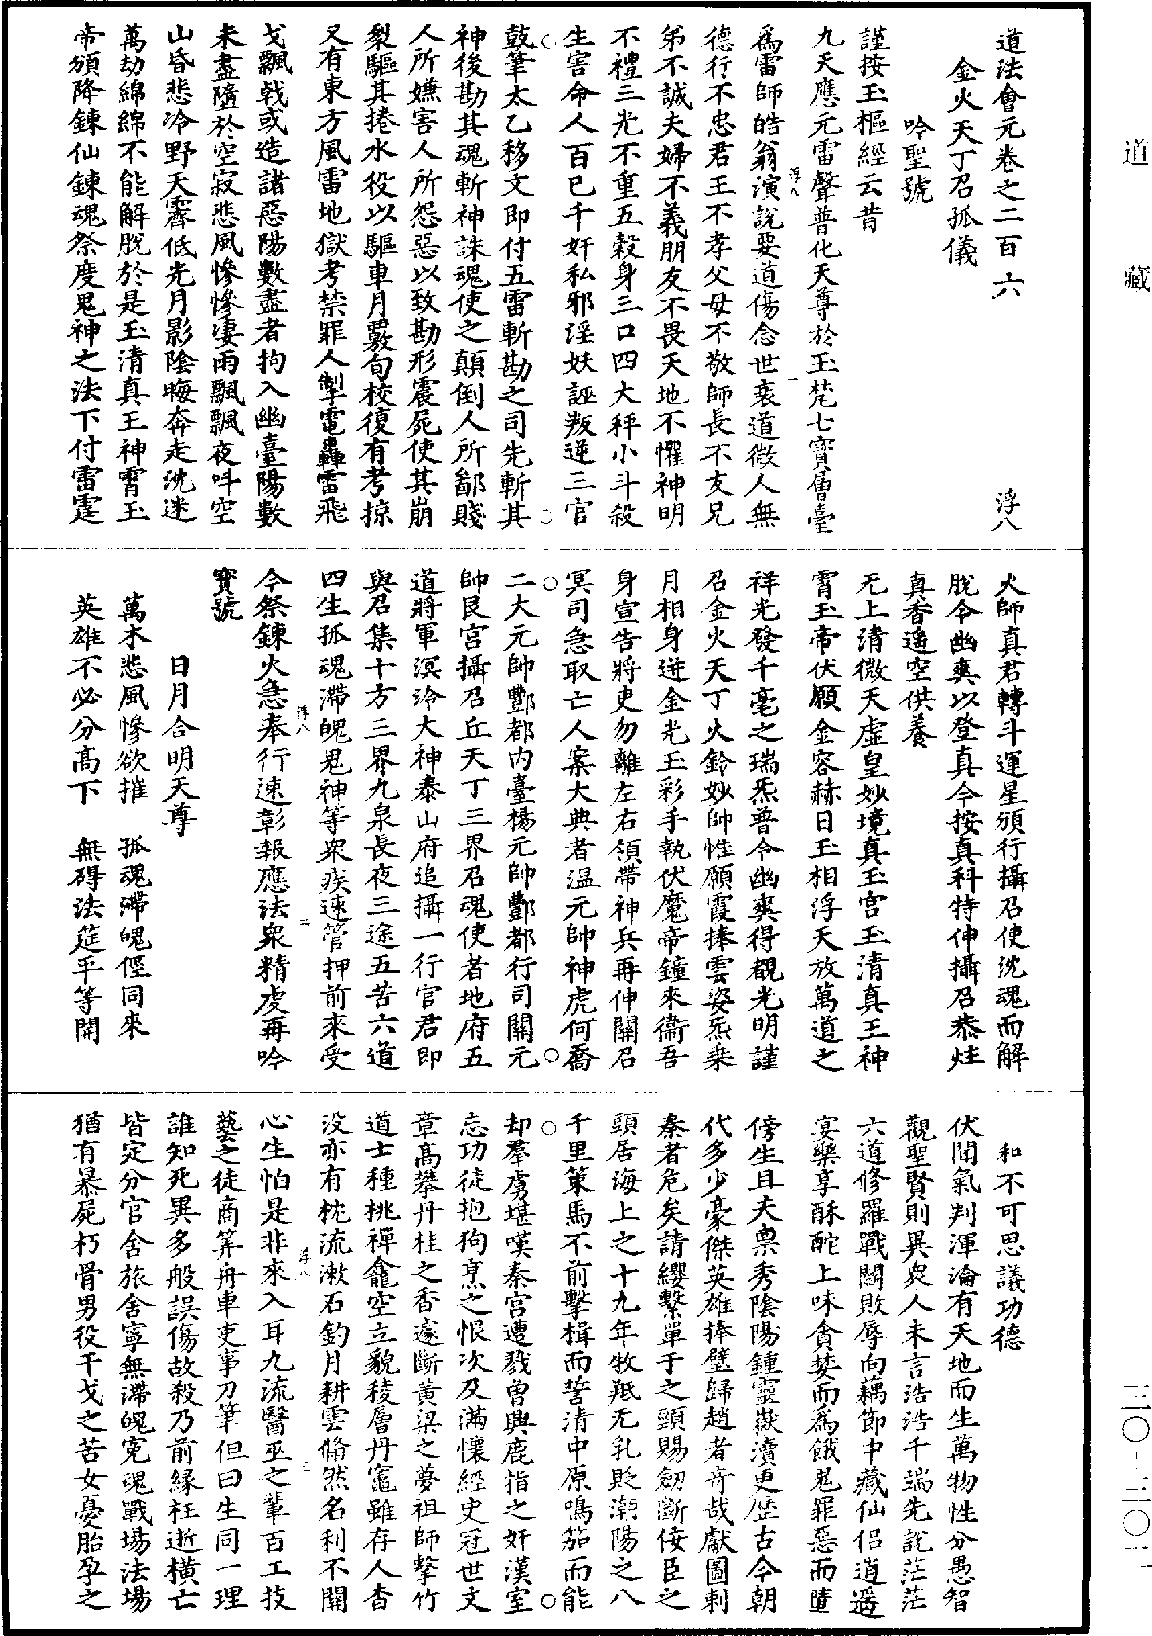 道法會元卷之二百六
浮八
金火天丁召孤儀
吟聖號
謹按玉樞經云昔
九天應元雷聲普化天尊於玉梵七寶層臺
為雷師皓翁演說要道傷念世衰道微人無
德行不忠君王不孝父母不敬師長不友兄
弟不誠夫婦不義朋友不畏天地不懼神明
不禮三光不重五穀身三口四大秤小斗殺
生害命人百已千奸私邪淫妖誣叛逆三官
鼓筆太乙移文即付五雷斬勘之司先斬其
神後勘其魂斬神誅魂使之顛倒人所鄙賤
人所嫌害人所怨惡以致勘形震屍使其崩
裂驅其捲水役以驅車月覈旬校復有考掠
又有東方風雷地獄考禁罪人掣電轟雷飛
戈飄戟或造諸惡陽數盡者拘入幽臺陽數
未盡墮於空寂悲風慘慘凄雨飄飄夜叫空
山昏悲泠野天霽低光月影陰晦奔走沈迷
萬劫綿綿不能解脫於是玉清真王神霄玉
帝頒降鍊仙鍊魂祭度鬼神之法下付雷霆
火師真君轉斗運星頒行攝召使沈魂而解
脫令幽爽以登真今按真科特伸攝召恭炷
真香遙空供養
无上清微天虛皇妙境真玉宮玉清真王神
霄玉帝伏願金容赫日玉相浮天放萬道之
祥光發千毫之瑞炁普令幽爽得覩光明謹
召金火天丁火鈴妙帥性願霞捧雲姿炁乘
月相身迸金光玉彩手執伏魔帝鐘來衞吾
身宣告將吏勿離左右領帶神兵再伸關召
冥司急取亡人案大典者溫元帥神虎何喬
二大元帥酆都內臺楊元帥酆都行司關元
帥艮宮攝召丘天丁三界召魂使者地府五
道將軍溟泠大神泰山府追攝一行官君即
與召集十方三界九泉長夜三途五苦六道
四生孤魂滯魄鬼神等衆疾速管押前來受
今祭鍊火急奉行速彰報應法衆精虔再吟
寶號
日月合明天尊
萬木悲風慘欲摧　孤魂滯魄徑同來
英雄不必分高下　無碍法筵平等開
和不可思議功德
伏聞氣判渾淪有天地而生萬物性分愚智
觀聖賢則異衆人未言浩浩千端先說茫茫
六道修羅戰鬭敗辱向藕節中藏仙侶道遙
宴樂享酥酡上味貪婪而為餓鬼罪惡而墮
傍生且夫稟秀陰陽鍾靈嶽瀆更歷古今朝
代多少豪傑英雄捧璧歸趙者奇哉獻圖刺
秦者危矣請纓繫單于之頸賜劍斷佞臣之
頭居海上之十九年牧羝无乳貶潮陽之八
千里策馬不前擊楫而誓清中原鳴笳而能
却羣虜堪嘆秦宮遭戮曾興鹿指之奸漢室
忘功徒抱狗烹之恨次及滿懷經史冠世文
章高攀丹桂之香遽斷黃粱之夢祖師擊竹
道士種桃禪龕空立貌稜層丹竈雖存人杳
沒亦有枕流漱石釣月耕雲翛然名利不關
心生怕是非來入耳九流醫巫之輩百工技
藝之徒商筭舟車吏事刀筆但曰生同一理
誰知死異多般誤傷故殺乃前緣枉逝橫亡
皆定分官舍旅舍寧無滯魄冤魂戰場法場
猶有暴屍朽骨男役干戈之苦女憂胎孕之
浮八
一
浮八
二
浮八
三
道　藏
三〇-三〇二